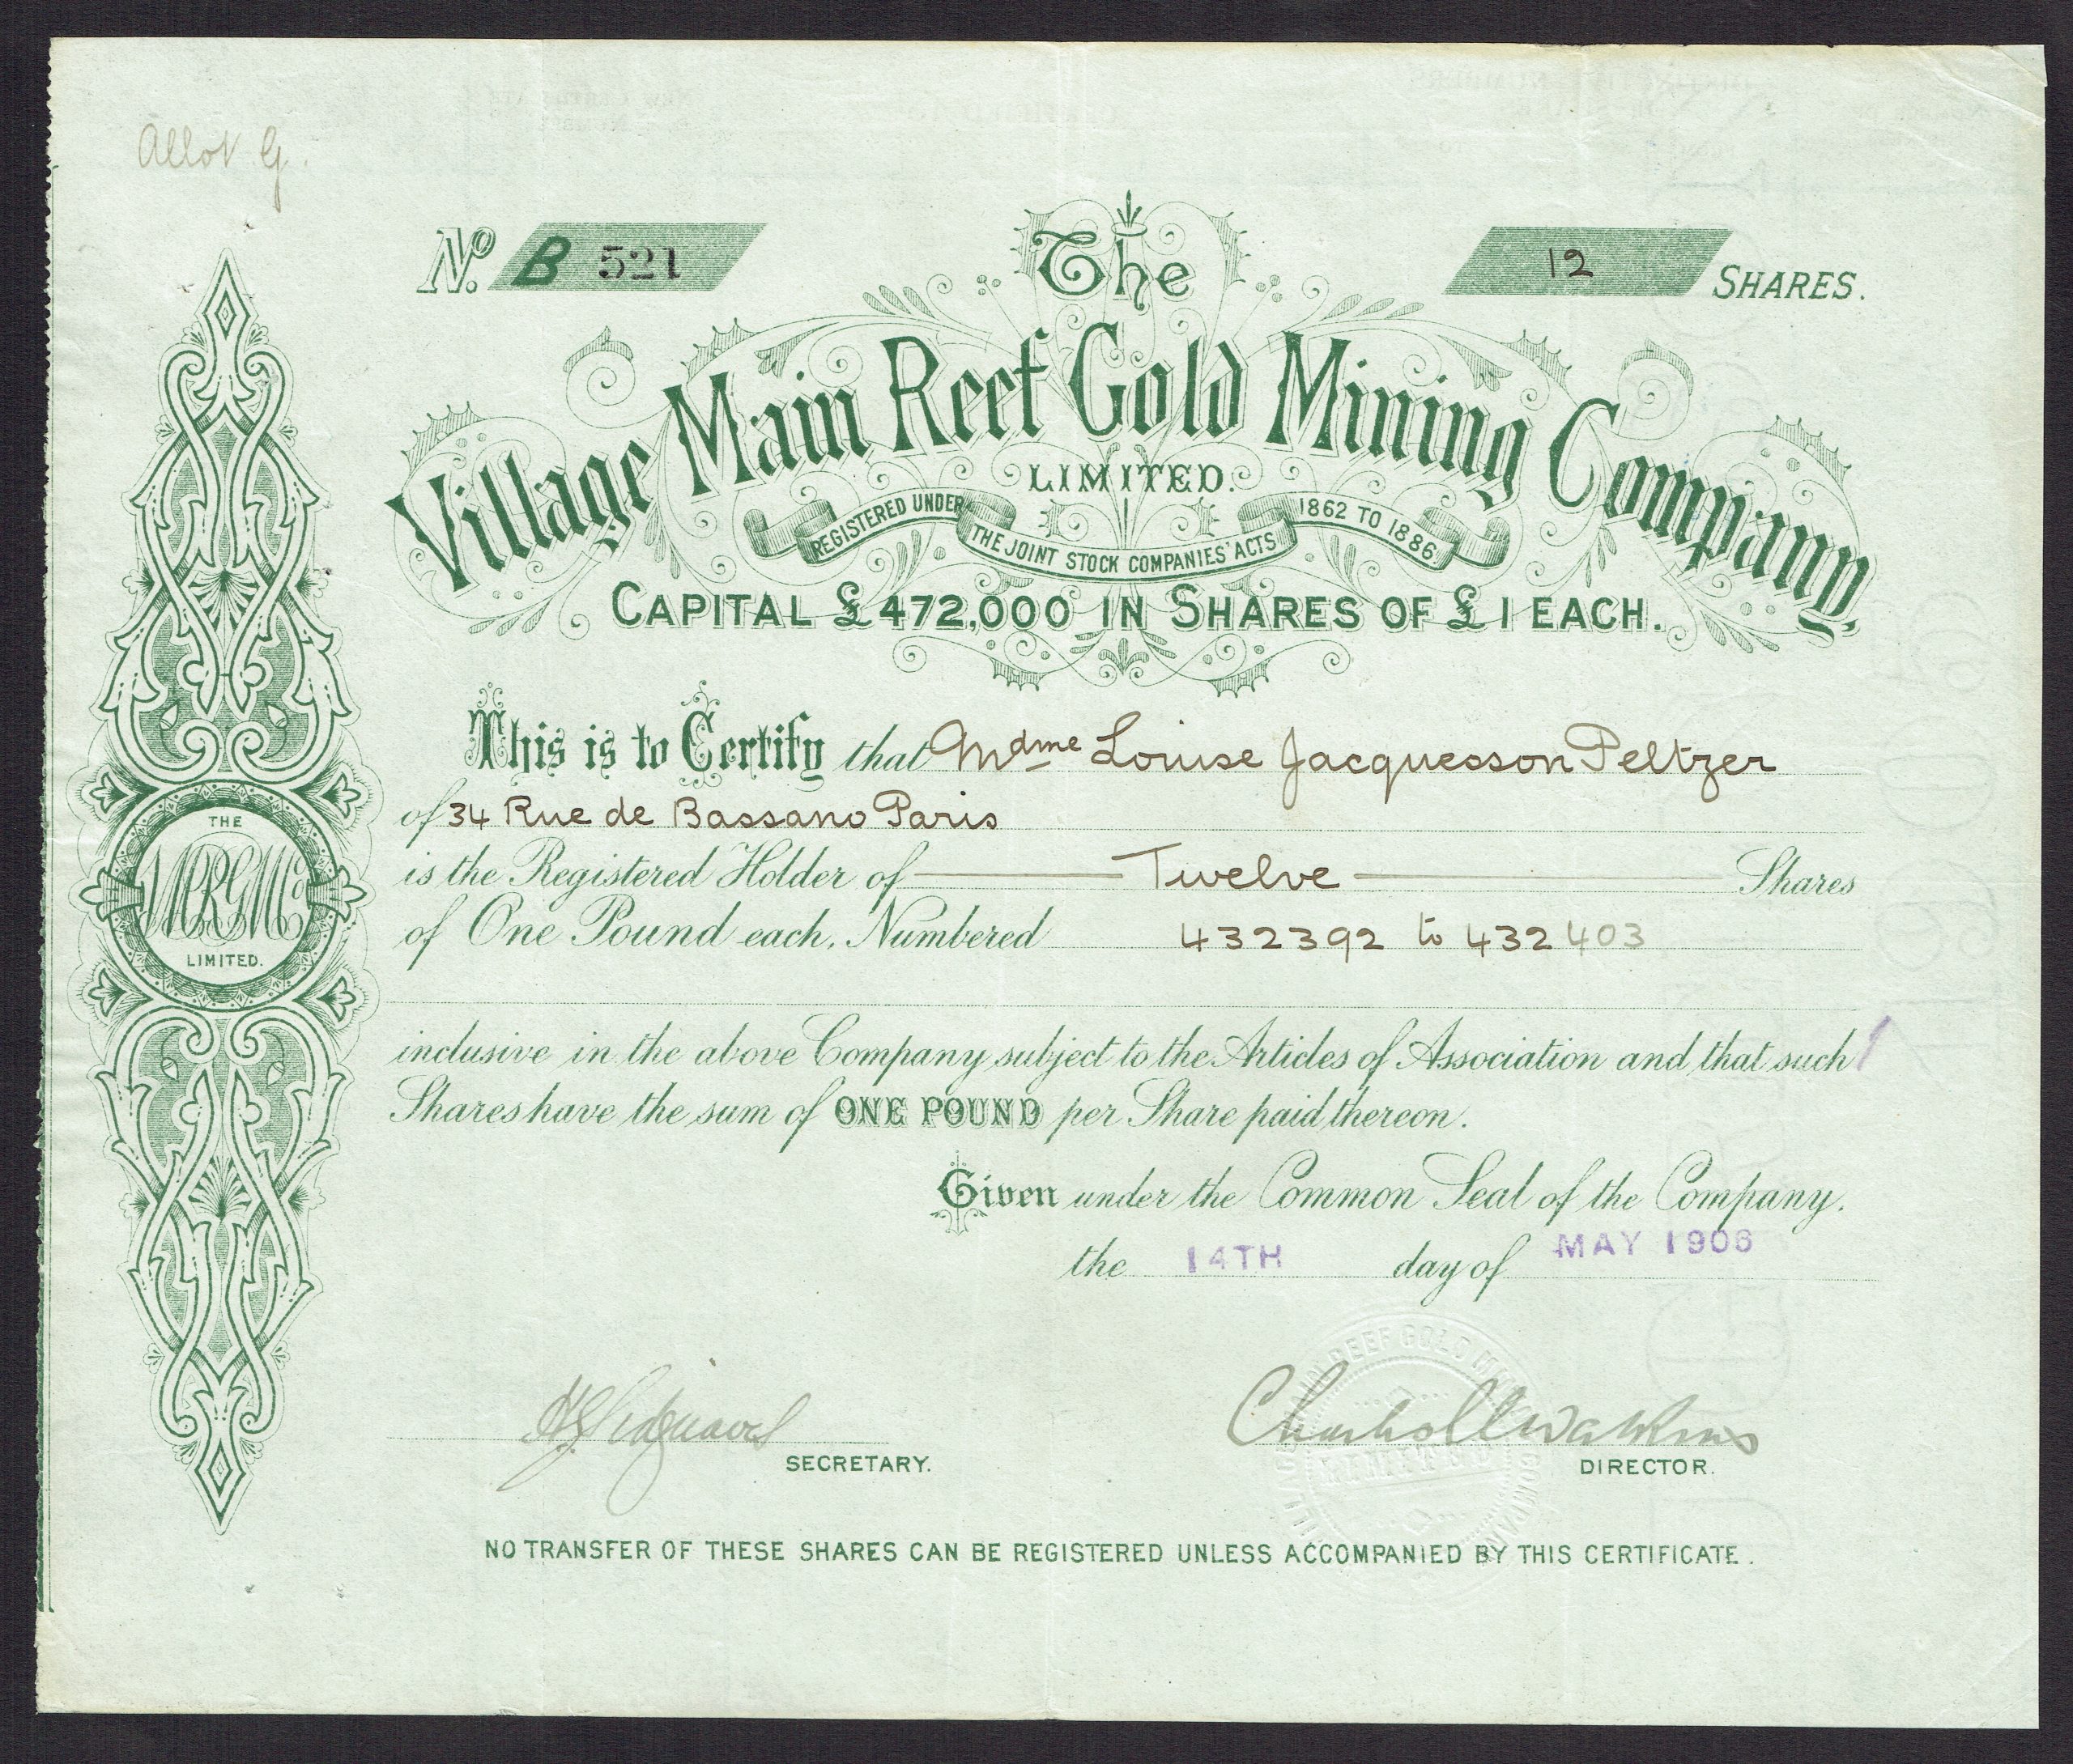 Allot G.
No. B 521
12 SHARES.
The
Village Main Reef Gold Mining Company,
LIMITED.
REGISTERED UNDER THE JOINT STOCK COMPANIES' ACTS 1862 TO 1886
CAPITAL £472,000 IN SHARES OF £1 EACH.
This is to Certify that Mdme Louise Jacquesson Peltzer
of 34 Rue de Bassano Paris
is the Registered Holder of Twelve Shares
of One Pound each, Numbered 432392 to 432403
inclusive in the above Company subject to the Articles of Association and that such
Shares have the sum of ONE POUND per Share paid thereon.
Given under the Common Seal of the Company.
the 14TH day of MAY 1906
SECRETARY.
DIRECTOR.
NO TRANSFER OF THESE SHARES CAN BE REGISTERED UNLESS ACCOMPANIED BY THIS CERTIFICATE.
THE
VMRGMCo
LIMITED.